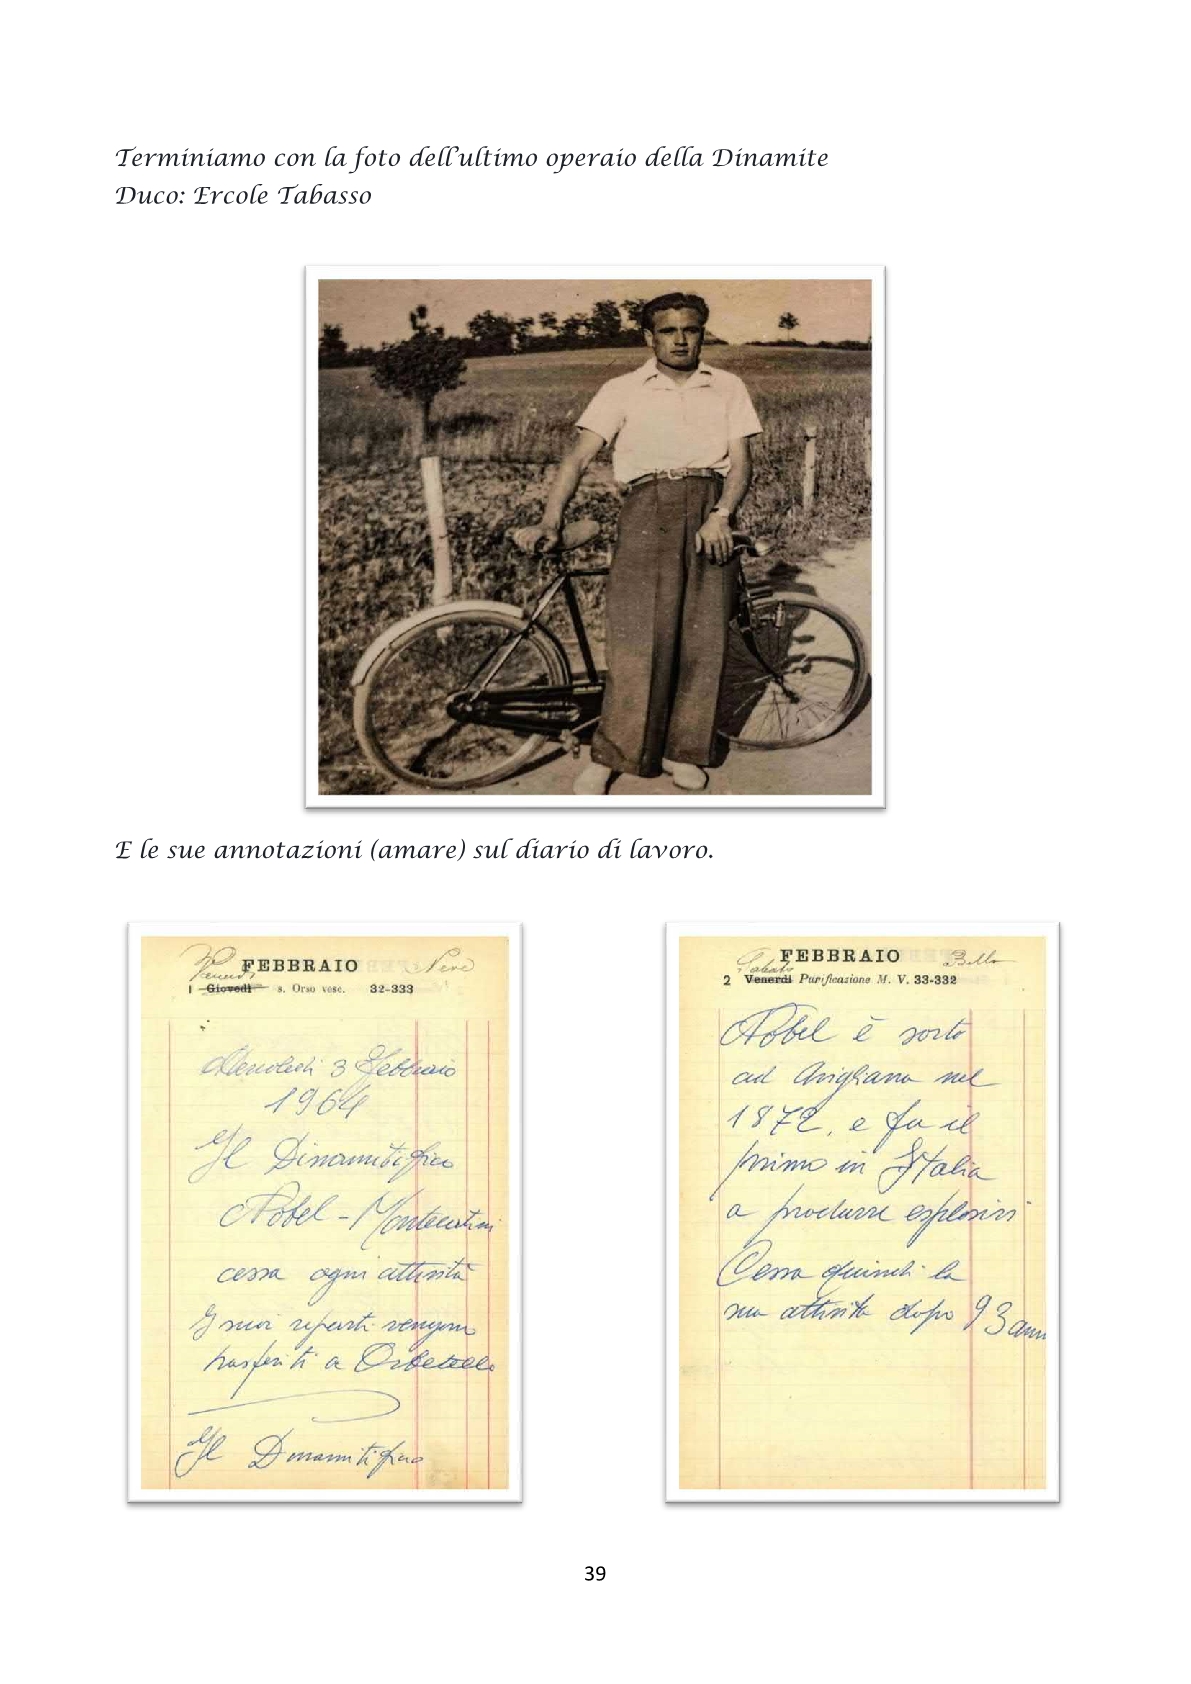 Terminiamo con la foto dell'ultimo operaio della Dinamite
Duco: Ercole Tabasso
E le sue annotazioni (amare) sul diario di lavoro.
Venerdi FEBBRAIO Neve
1 Giovedì s. Orso vesc. 32-333
Mercoledi 3 Febbraio
1964
Il Dinamitificio
Nobel - Montecatini
cessa ogni attività
I suoi reparti vengono
trasferiti a Orbetello
Il Dinamitificio
Sabato FEBBRAIO Bello
2 Venerdì Purificazione M. V. 33-332
Nobel è sorto
ad Avigliana nel
1872, e fu il
primo in Italia
a produrre esplosivi
Cessa quindi la
sua attività dopo 93 anni
39